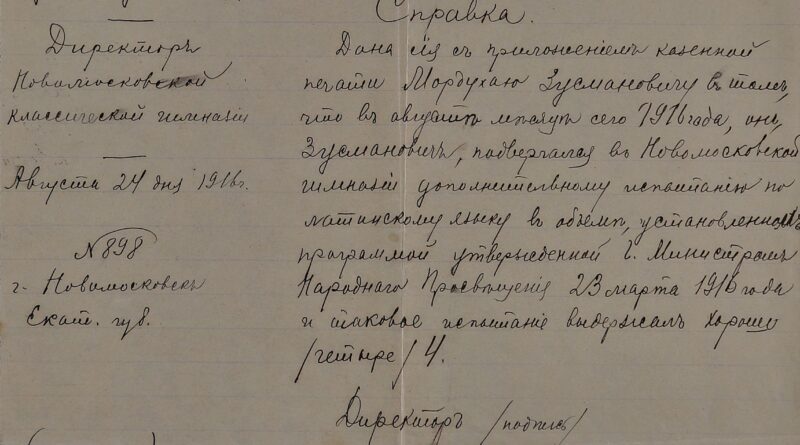 Справка.
Директоръ
Новомосковской
классической гимназіи
Августа 24 дня 1916 г.
№ 898
г. Новомосковскъ
Екат. губ.
Дана сія съ приложеніемъ казенной
печати Мордухаю Зусмановичу въ томъ,
что въ августѣ мѣсяцѣ сего 1916 года, онъ,
Зусмановичъ, подвергался въ Новомосковской
гимназіи дополнительному испытанію по
латинскому языку въ объемѣ, установленномъ
программой утвержденной Г. Министромъ
Народнаго Просвѣщенія 23 марта 1916 года
и таковое испытаніе выдержалъ хорошо
/четыре/ 4.
Директоръ /подпись/